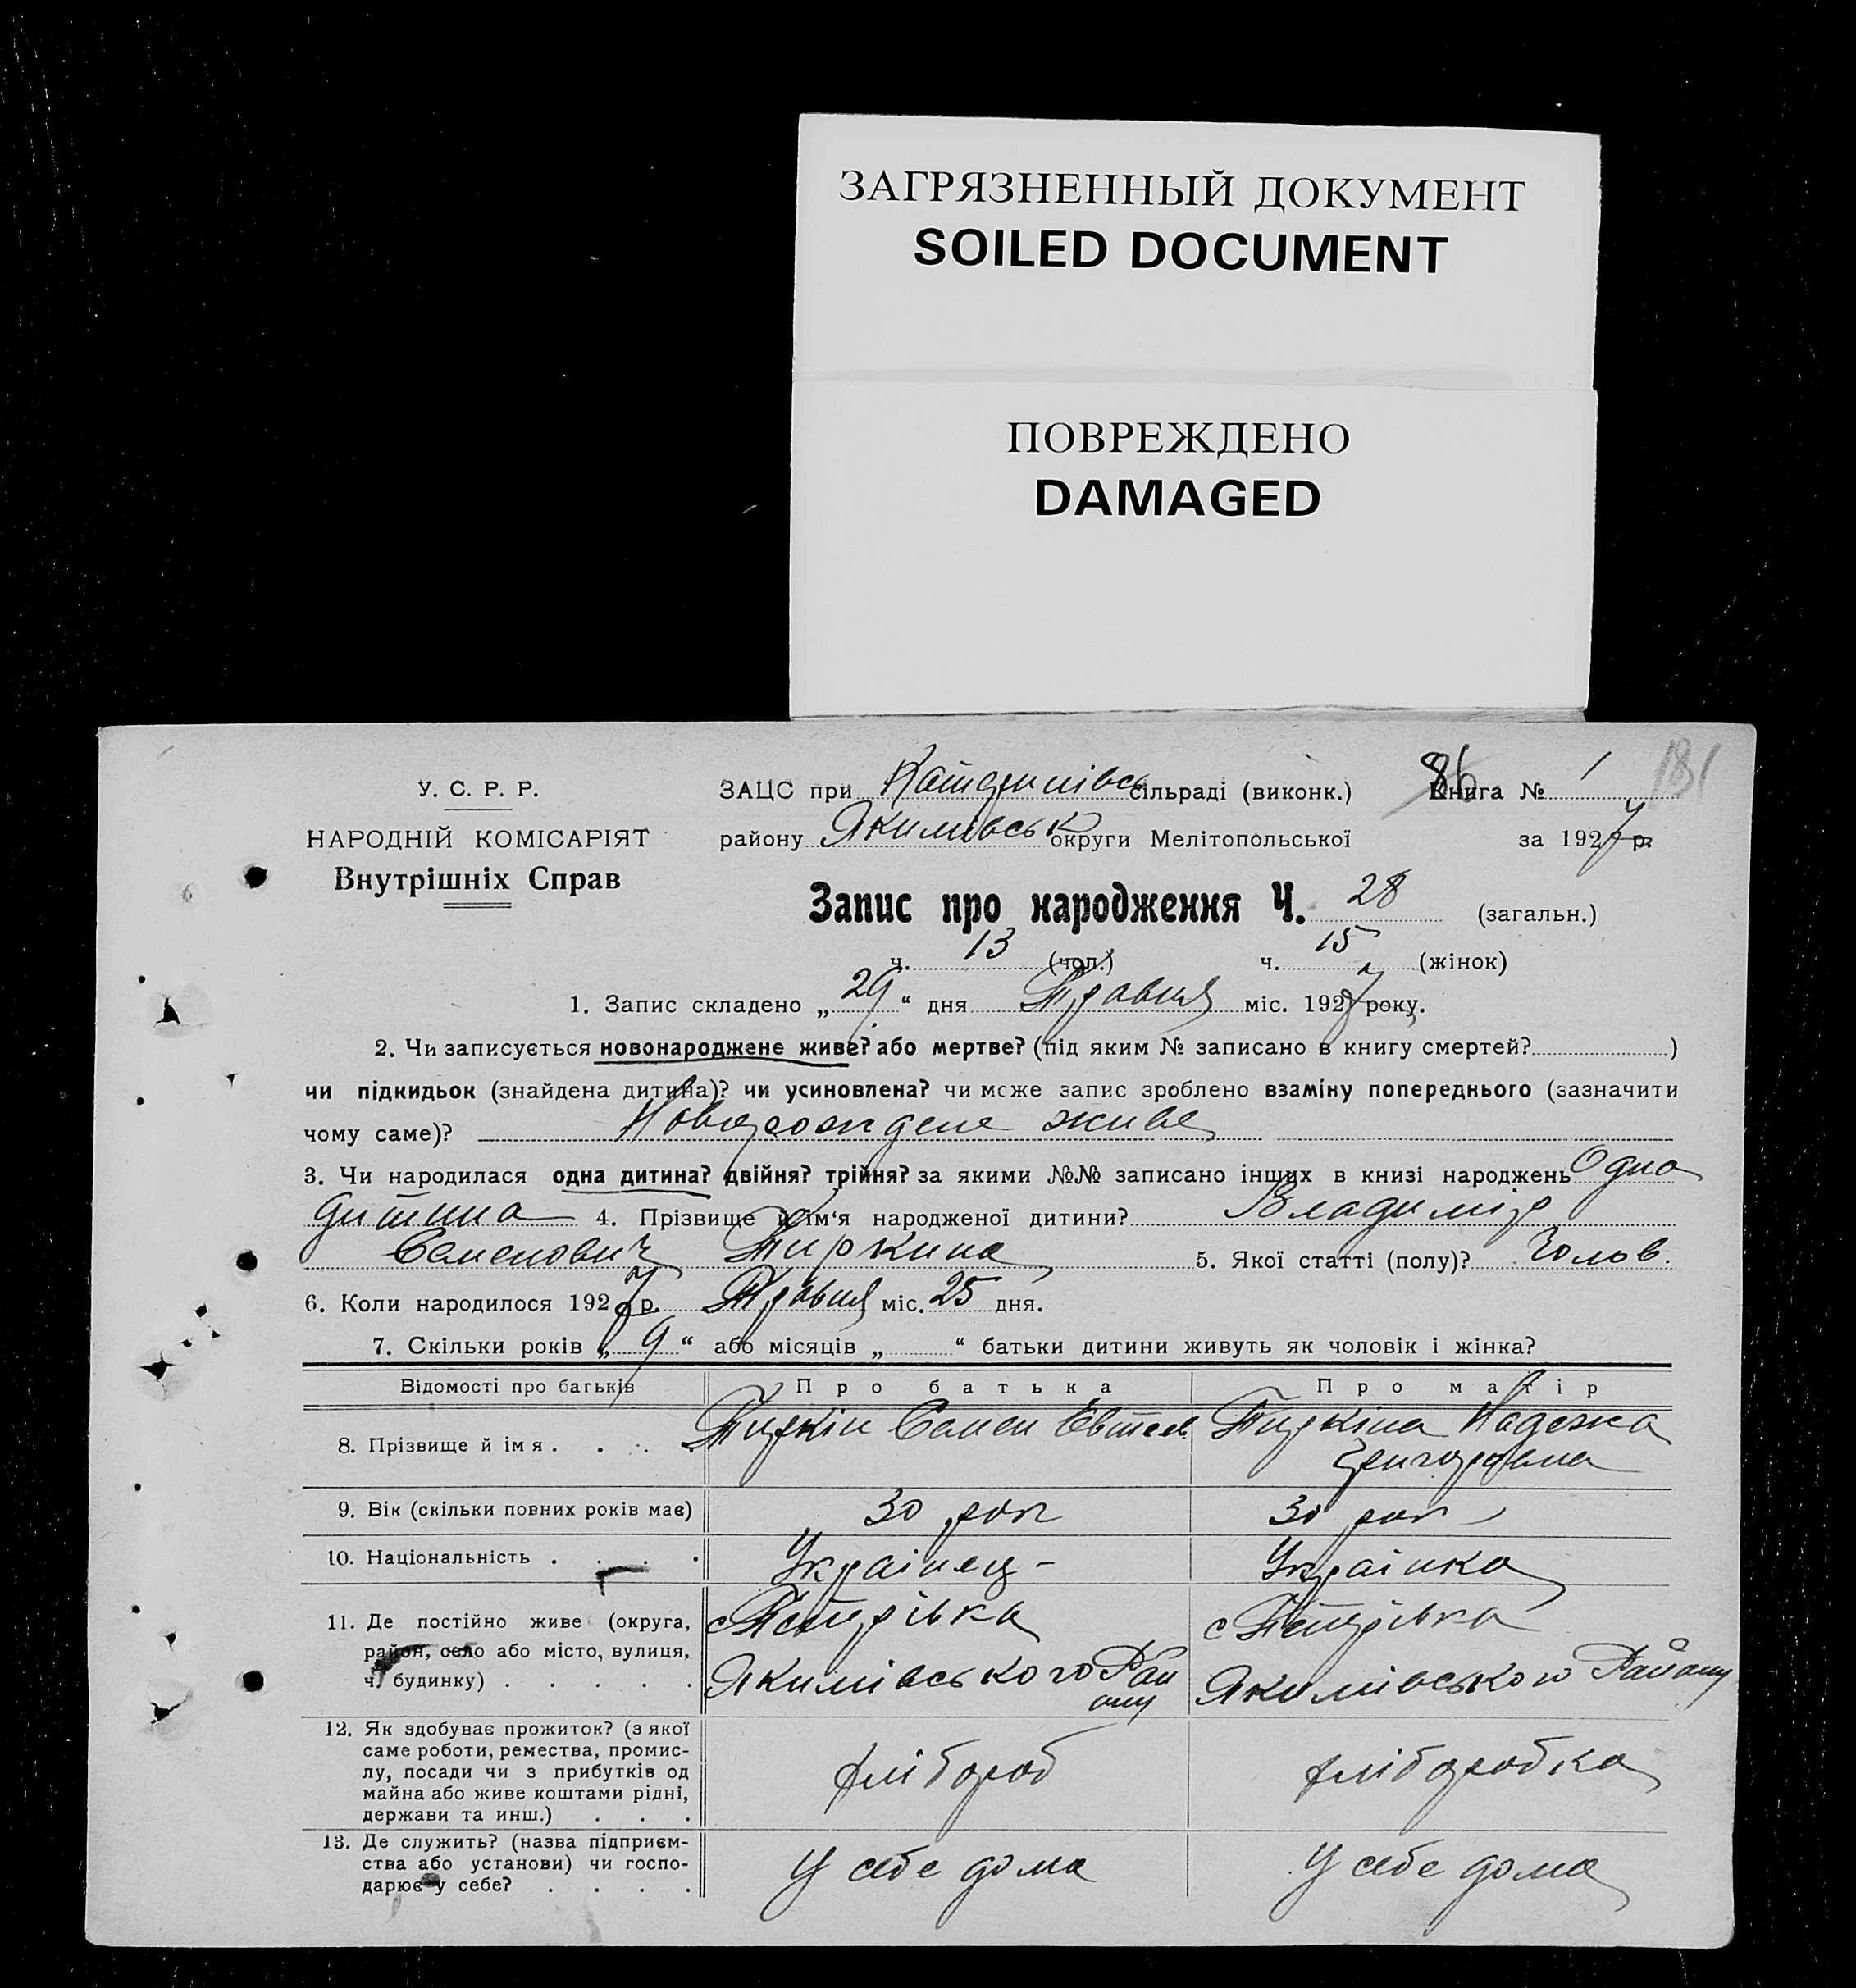 ЗАГРЯЗНЕННЫЙ ДОКУМЕНТ
SOILED DOCUMENT
ПОВРЕЖДЕНО
DAMAGED
181
У. С. Р. Р.
НАРОДНІЙ КОМІСАРІЯТ
Внутрішніх Справ
ЗАЦС при сільраді (виконк.) 86 Книга № 1
району Якимівськ округи Мелітопольської за 1927 р.
Запис про народження Ч. 28 (загальн.)
ч. 13 (чол.) ч. 15 (жінок)
1. Запис складено „29“ дня Травня міс. 1927 року.
2. Чи записується новонароджене живе? або мертве? (під яким № записано в книгу смертей? )
чи підкидьок (знайдена дитина)? чи усиновлена? чи може запис зроблено взаміну попереднього (зазначити
чому саме)? живе
3. Чи народилася одна дитина? двійня? трійня? за якими №№ записано інших в книзі народжень Одна
дитина 4. Прізвище й ім‘я народженої дитини? Владимір
Семенович 5. Якої статті (полу)? Чолов.
6. Коли народилося 1927 р. Травня міс. 25 дня.
7. Скільки років „9“ або місяців „ “ батьки дитини живуть як чоловік і жінка?
Відомості про батьків Про батька Про матір
8. Прізвище й імя . . . . Семен Надежа
9. Вік (скільки повних років має) 30 рок 30 рок
10. Національність . . . . Українец Українка
11. Де постійно живе (округа,
район, село або місто, вулиця,
ч. будинку) . . . . .
с Петрівка с Петрівка
Якимівського Рай
ону
Якимівського Району
12. Як здобуває прожиток? (з якої
саме роботи, ремества, промис-
лу, посади чи з прибутків од
майна або живе коштами рідні,
держави та инш.) . . .
хлібороб хліборобка
13. Де служить? (назва підприєм-
ства або установи) чи госпо-
дарює у себе? . . . .
У себе дома У себе дома